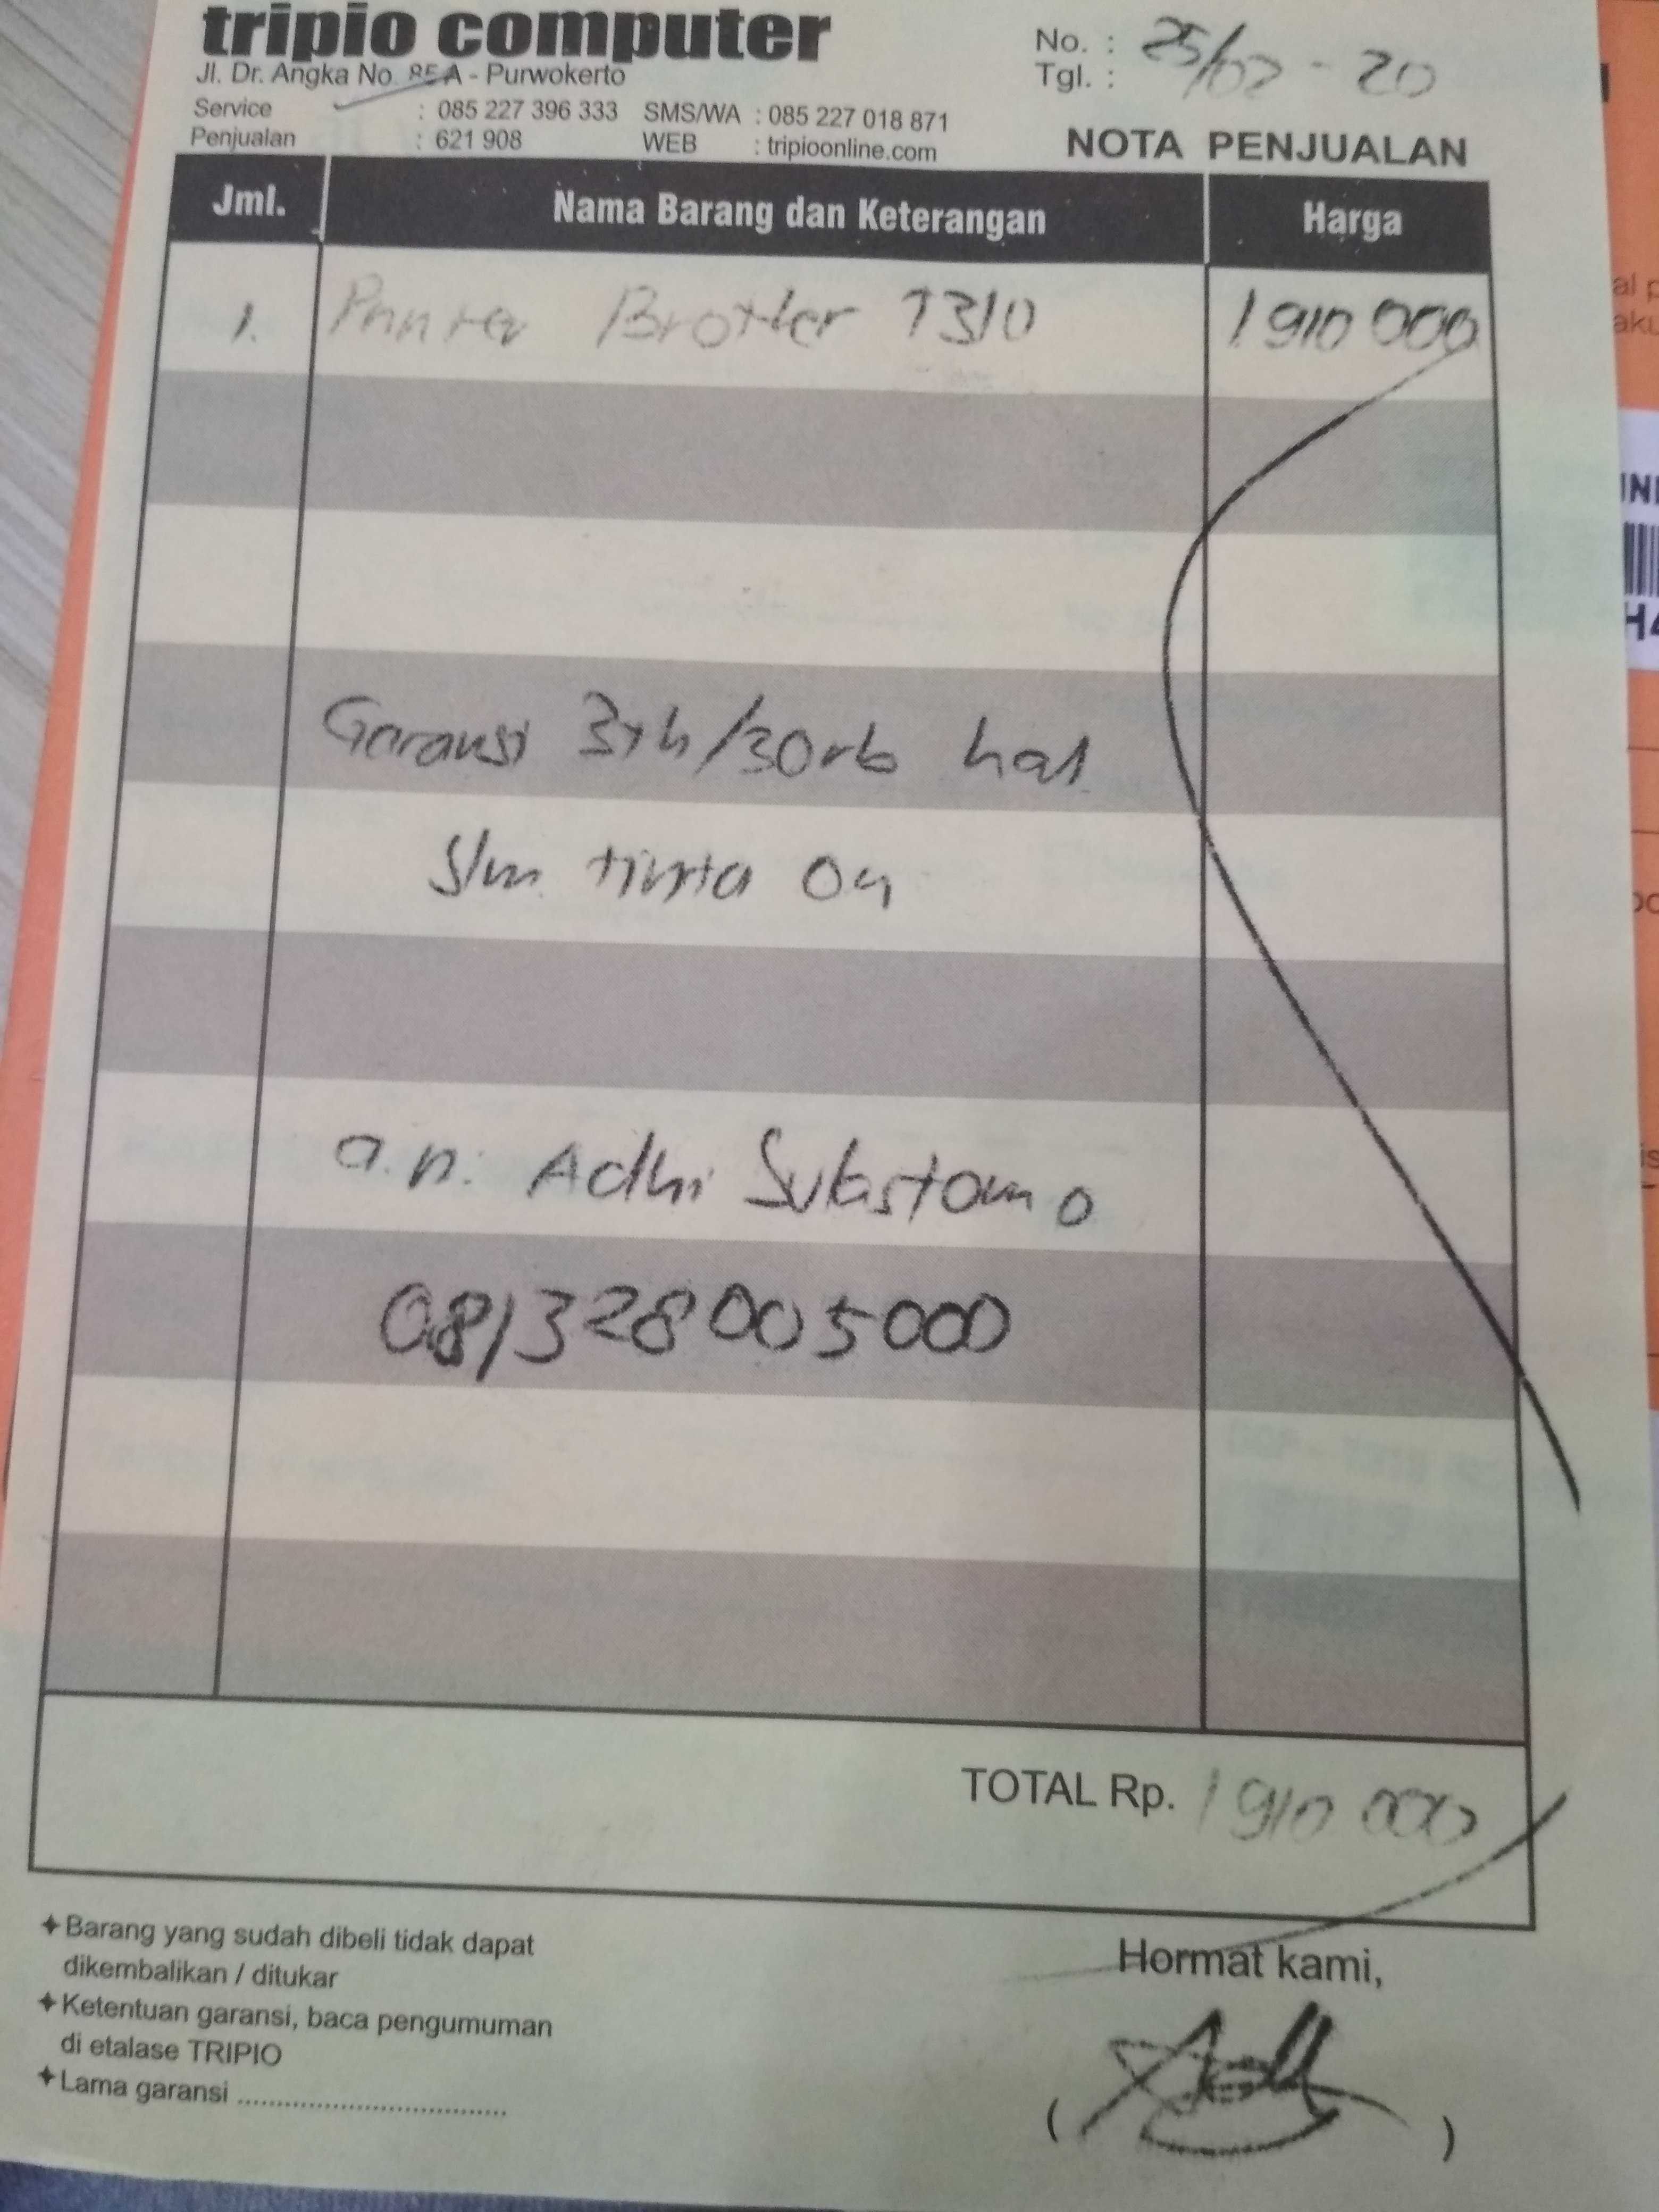 tripio computer
Jl. Dr. Angka No. 85 A - Purwokerto
Service : 085 227 396 333 SMS/WA : 085 227 018 871
Penjualan : 621 908 WEB : tripioonline.com
No. :
Tgl. : 25/02 - 20
NOTA PENJUALAN
Jml. Nama Barang dan Keterangan Harga
1. Printer Brother T310 1 910 000
Garansi 3th/30rb hal
tinta
a.n. Adhi
081328005000
TOTAL Rp. 1 910 000
Barang yang sudah dibeli tidak dapat
dikembalikan / ditukar
Ketentuan garansi, baca pengumuman
di etalase TRIPIO
Lama garansi ....................................
Hormat kami,
( )